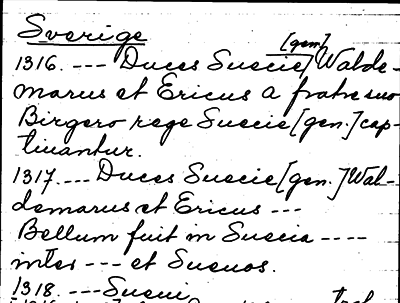 Sverige
1316. --- Duces Suecie [gen] Walde-
marus et Ericus a fratre suo
Birgero rege Suecie [gen.] cap-
tiuantur.
1317. --- Duces Suecie [gen.] Wal-
demarus et Ericus ---
Bellum fuit in Suecia ----
inter --- et Suenos.
1318. --- Sueui